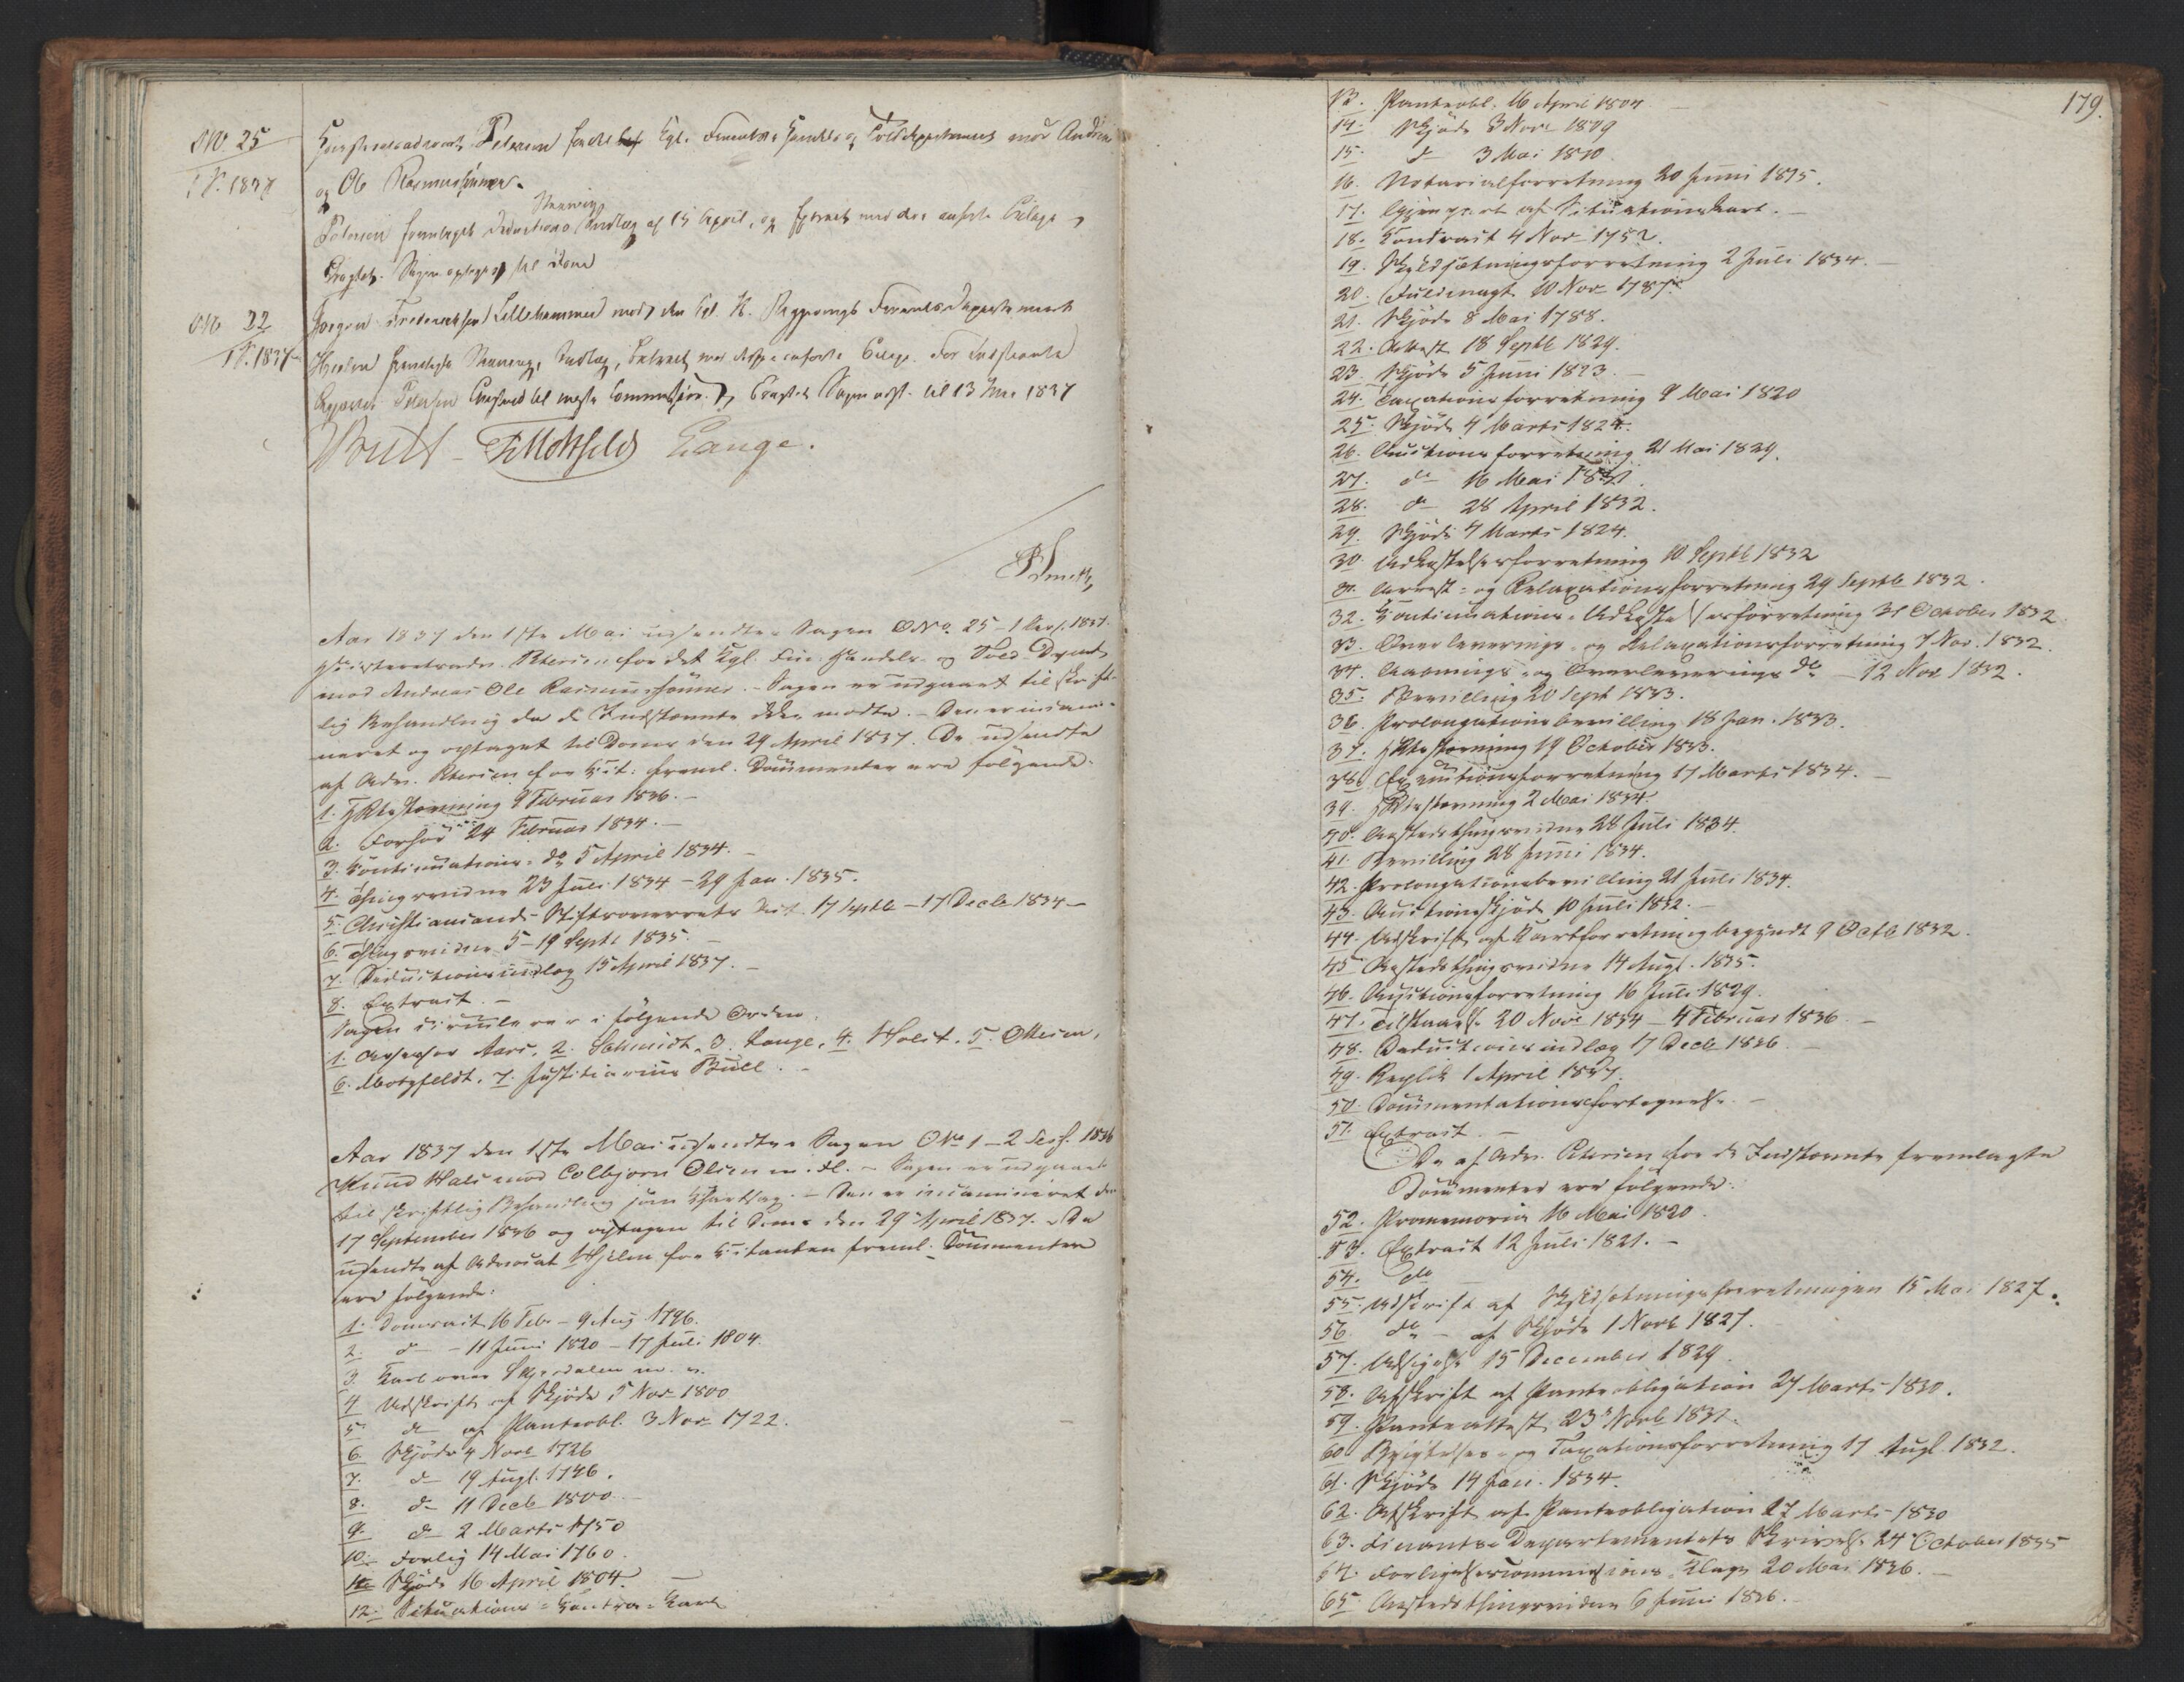 ONo. 25
1 S. 1837
Høiesteretsadvocat Petersen for det Kgl. Finants- Handels og Told Departement mod Andreas
og Ole Rasmussønner.
Stævning
Petersen fremlagde Deductions Indlæg af 15 April, og Extract med deri anførte Bilage,
Sagen optaget til Doms
ONo 22
1 S. 1837
Jørgen Fredriksen Lillehammer mod den Kgl. N. Regjerings Finants Departement
Hjelm fremlagde Stævning, Indlæg, Extract med deri anførte Bilage. For Indstævnte
Petersen til næste Sagen uds. til 13 Mai 1837
Bull Motzfeldt Lange.
PSmith
Aar 1837 den 1ste Mai udsendtes Sagen ONo. 25 - 1 Sess. 1837.
Høiesteretsadv. Petersen for det Kgl. Fin. Handels- og Told-Depmt
mod Andreas Ole Rasmussønner. - Sagen er udgaaet til skrift-
lig Behandling da de Indstævnte ikke mødte. - Den er incami-
neret og optaget til Doms den 29 April 1837. De udsendte
af Adv. Petersen for Cit: freml. Documenter ere følgende:
1. HRtsstævning 9 Februar 1836. -
2. Forhør 24 Februar 1834. -
3. Continuations- do 5 April 1834. -
4. Thingsvidne 23 Juli 1834 - 29 Jan. 1835.
5. Christiansands Stiftsoverrets Act. 17 Septb - 17 Decb 1834 -
6. Thingsvidne 5 - 19 Septb 1835. -
7. Deductionsindlæg 15 April 1837. -
8. Extract. -
Sagen circulerer i følgende Orden.
1. Assessor Aars, 2. Schmidt, 3. Lange, 4. Holst, 5. Ottesen,
6. Motzfeldt, 7. Justitiarius Bull. -
Aar 1837 den 1ste Mai udsendtes Sagen ONo 1 - 2 Sess. 1836
Knud Hals mod Colbjørn Olsen m. fl. - Sagen er udgaaet
til skriftlig Behandling som Kartsag. - Den er incamineret den
17 September 1836 og optagen til Doms den 29 April 1837. - De
udsendte af Advocat Hjelm for Citanten freml. Documenter
ere følgende:
1. Domsact 16 Febr - 9 Aug 1796.
2. do - 11 Juni 1820 - 17 Juli 1804.
3. Kart over m. v.
4 Udskrift af Skjøde 5 Nov 1800
5 do af Panteobl. 3 Nov 1722.
6 Skjøde 4 Novb 1726
7. do 19 Augt. 1746.
8. do 11 Decb 1800
9. do 2 Marts 1750
10. Forlig 14 Mai 1760.
11. Skjøde 16 April 1804. -
12. Situations- Contra- Kart
179.
13. Panteobl. 16 April 1804
14. Skjøde 3 Novb 1809
15. do 3 Mai 1810
16. Notarialforretning 20 Juni 1815.
17. Gjenpart af Situationskart. -
18. Contract 4 Nov 1752.
19. Skyldsætningsforretning 2 Juli 1834. -
20. Fuldmagt 10 Nov 1787.
21. Skjøde 8 Mai 1788.
22. Attest 18 Septb 1829.
23. Skjøde 5 Juni 1823. -
24. Taxationsforretning 9 Mai 1820
25. Skjøde 4 Marts 1824.
26. Auctionsforretning 21 Mai 1829.
27. do 16 Mai 1831.
28. do 28 April 1832.
29. Skjøde 4 Marts 1824.
30. Udkastelsesforretning 10 Septb 1832
31. Arrest- og Relaxationsforretning 29 Septb 1832.
32. Continuations- Udkastelsesforretning 31 October 1832
33. Overleverings- og Relaxationsforretning 7 Nov. 1832.
34. Aabnings- og Overleverings do - 12 Nov 1832.
35. Bevilling 20 Sept 1833.
36. Prolongationsbevilling 18 Jan. 1833.
37. HRtsstævning 19 October 1833.
38. Executionsforretning 17 Marts 1834. -
39. HRtsstævning 2 Mai 1834.
40. Aastedsthingsvidne 28 Juli 1834.
41. Bevilling 28 Juni 1834.
42. Prolongationsbevilling 21 Juli 1834.
43. Auctionsskjøde 10 Juli 1832. -
44. Udskrift af Kartforretning begyndt 9 Octb 1832.
45. Aastedsthingsvidne 14 Augt. 1835.
46. Auctionsforretning 16 Juli 1829.
47. Tilstaaelse 20 Novb 1834 - 4 Februar 1836 -
48. Deductionsindlæg 17 Decb 1836. -
49. Replik 1 April 1837.
50. Documentationsfortegnelse. -
51. Extract. -
De af Adv. Petersen for de Indstævnte fremlagte
Documenter ere følgende:
52. Promemoria 16 Mai 1820.
53. Extract 12 Juli 1821. -
54. do -
55. Udskrift af Skyldsætningsforretningen 15 Mai 1827.
56. do - af Skjøde 1 Novb 1827.
57. Udsigelse 15 December 1829.
58. Afskrift af Panteobligation 27 Marts 1830.
59. Panteattest 23 Novb 1831.
60. Besigtelses- og Taxationsforretning 17 Augt. 1832.
61. Skjøde 14 Jan. 1834.
62. Afskrift af Panteobligation 27 Marts 1830
63. Finants- Departementets Skrivelse 24 October 1835
64. Forligelsescommissions- Klage 20 Mai 1836. -
65. Aastedsthingsvidne 6 Juni 1836. -